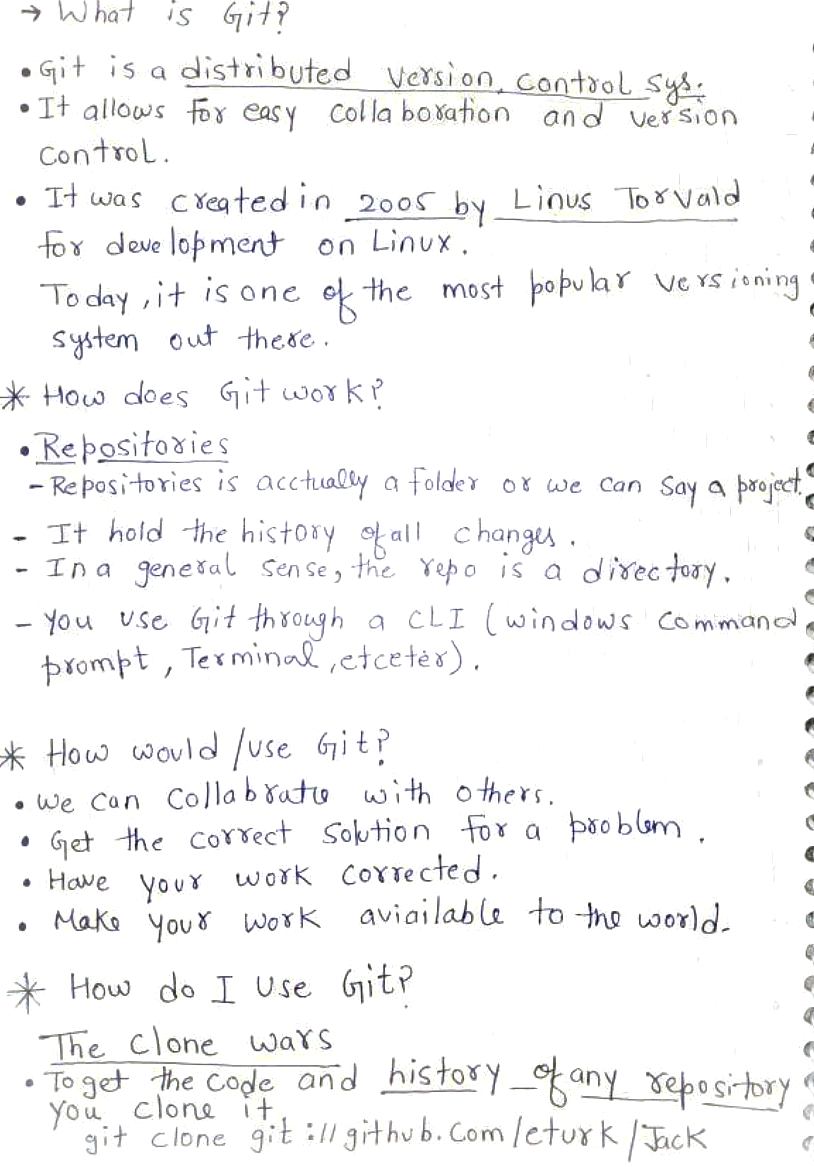 → What is Git?
• Git is a distributed version control sys.
• It allows for easy collaboration and version
control.
• It was created in 2005 by Linus Torvald
for development on Linux.
Today, it is one of the most popular versioning
system out there.
* How does Git work?
• Repositories
- Repositories is acctually a folder or we can say a project.
- It hold the history of all changes.
- In a general sense, the repo is a directory.
- You use Git through a CLI (windows command
prompt, Terminal, etceter).
* How would /use Git?
• We can Collabratie with others.
• Get the correct solution for a problem.
• Have your work corrected.
• Make your work aviailable to the world.
* How do I use Git?
The Clone wars
• To get the code and history of any repository
you clone it
git clone git://github.com/eturk/Jack